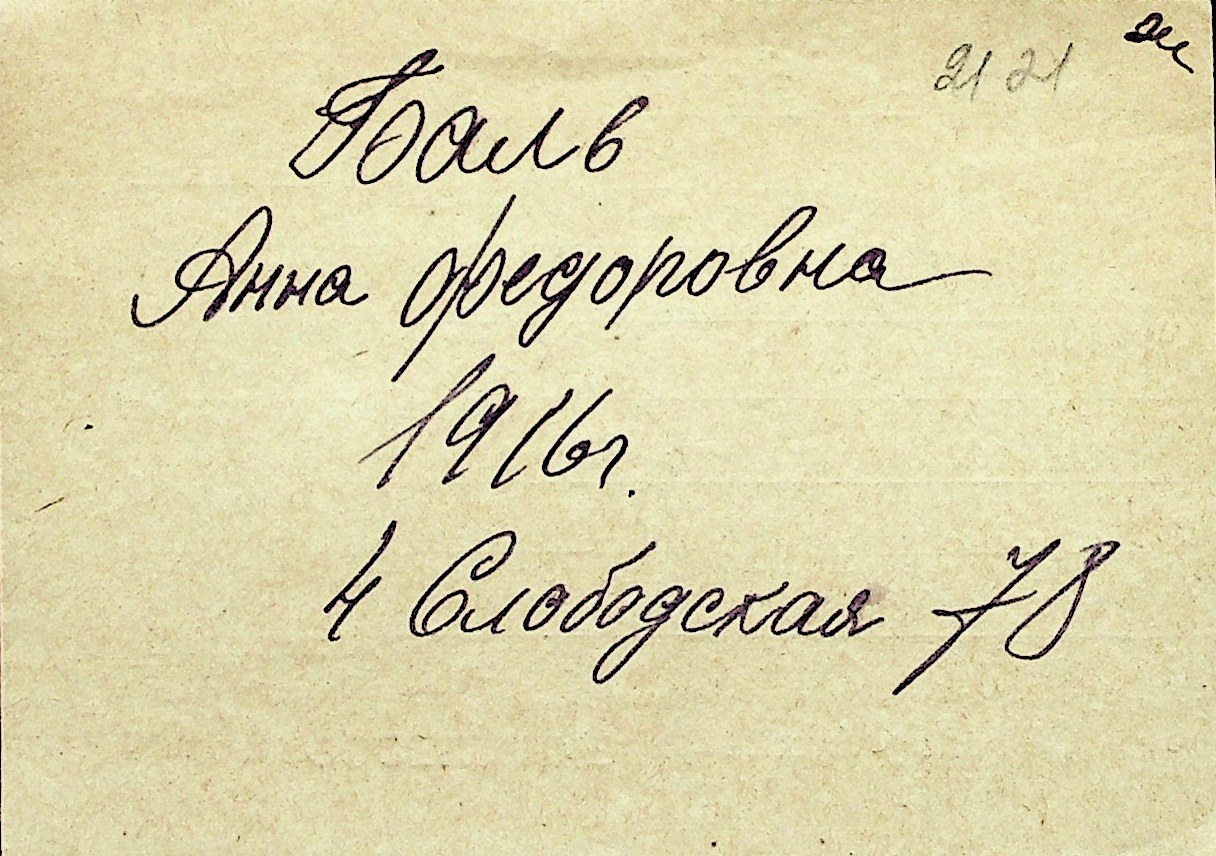 21 21
Баль
Анна Федоровна
1916г.
4 Слободская 78